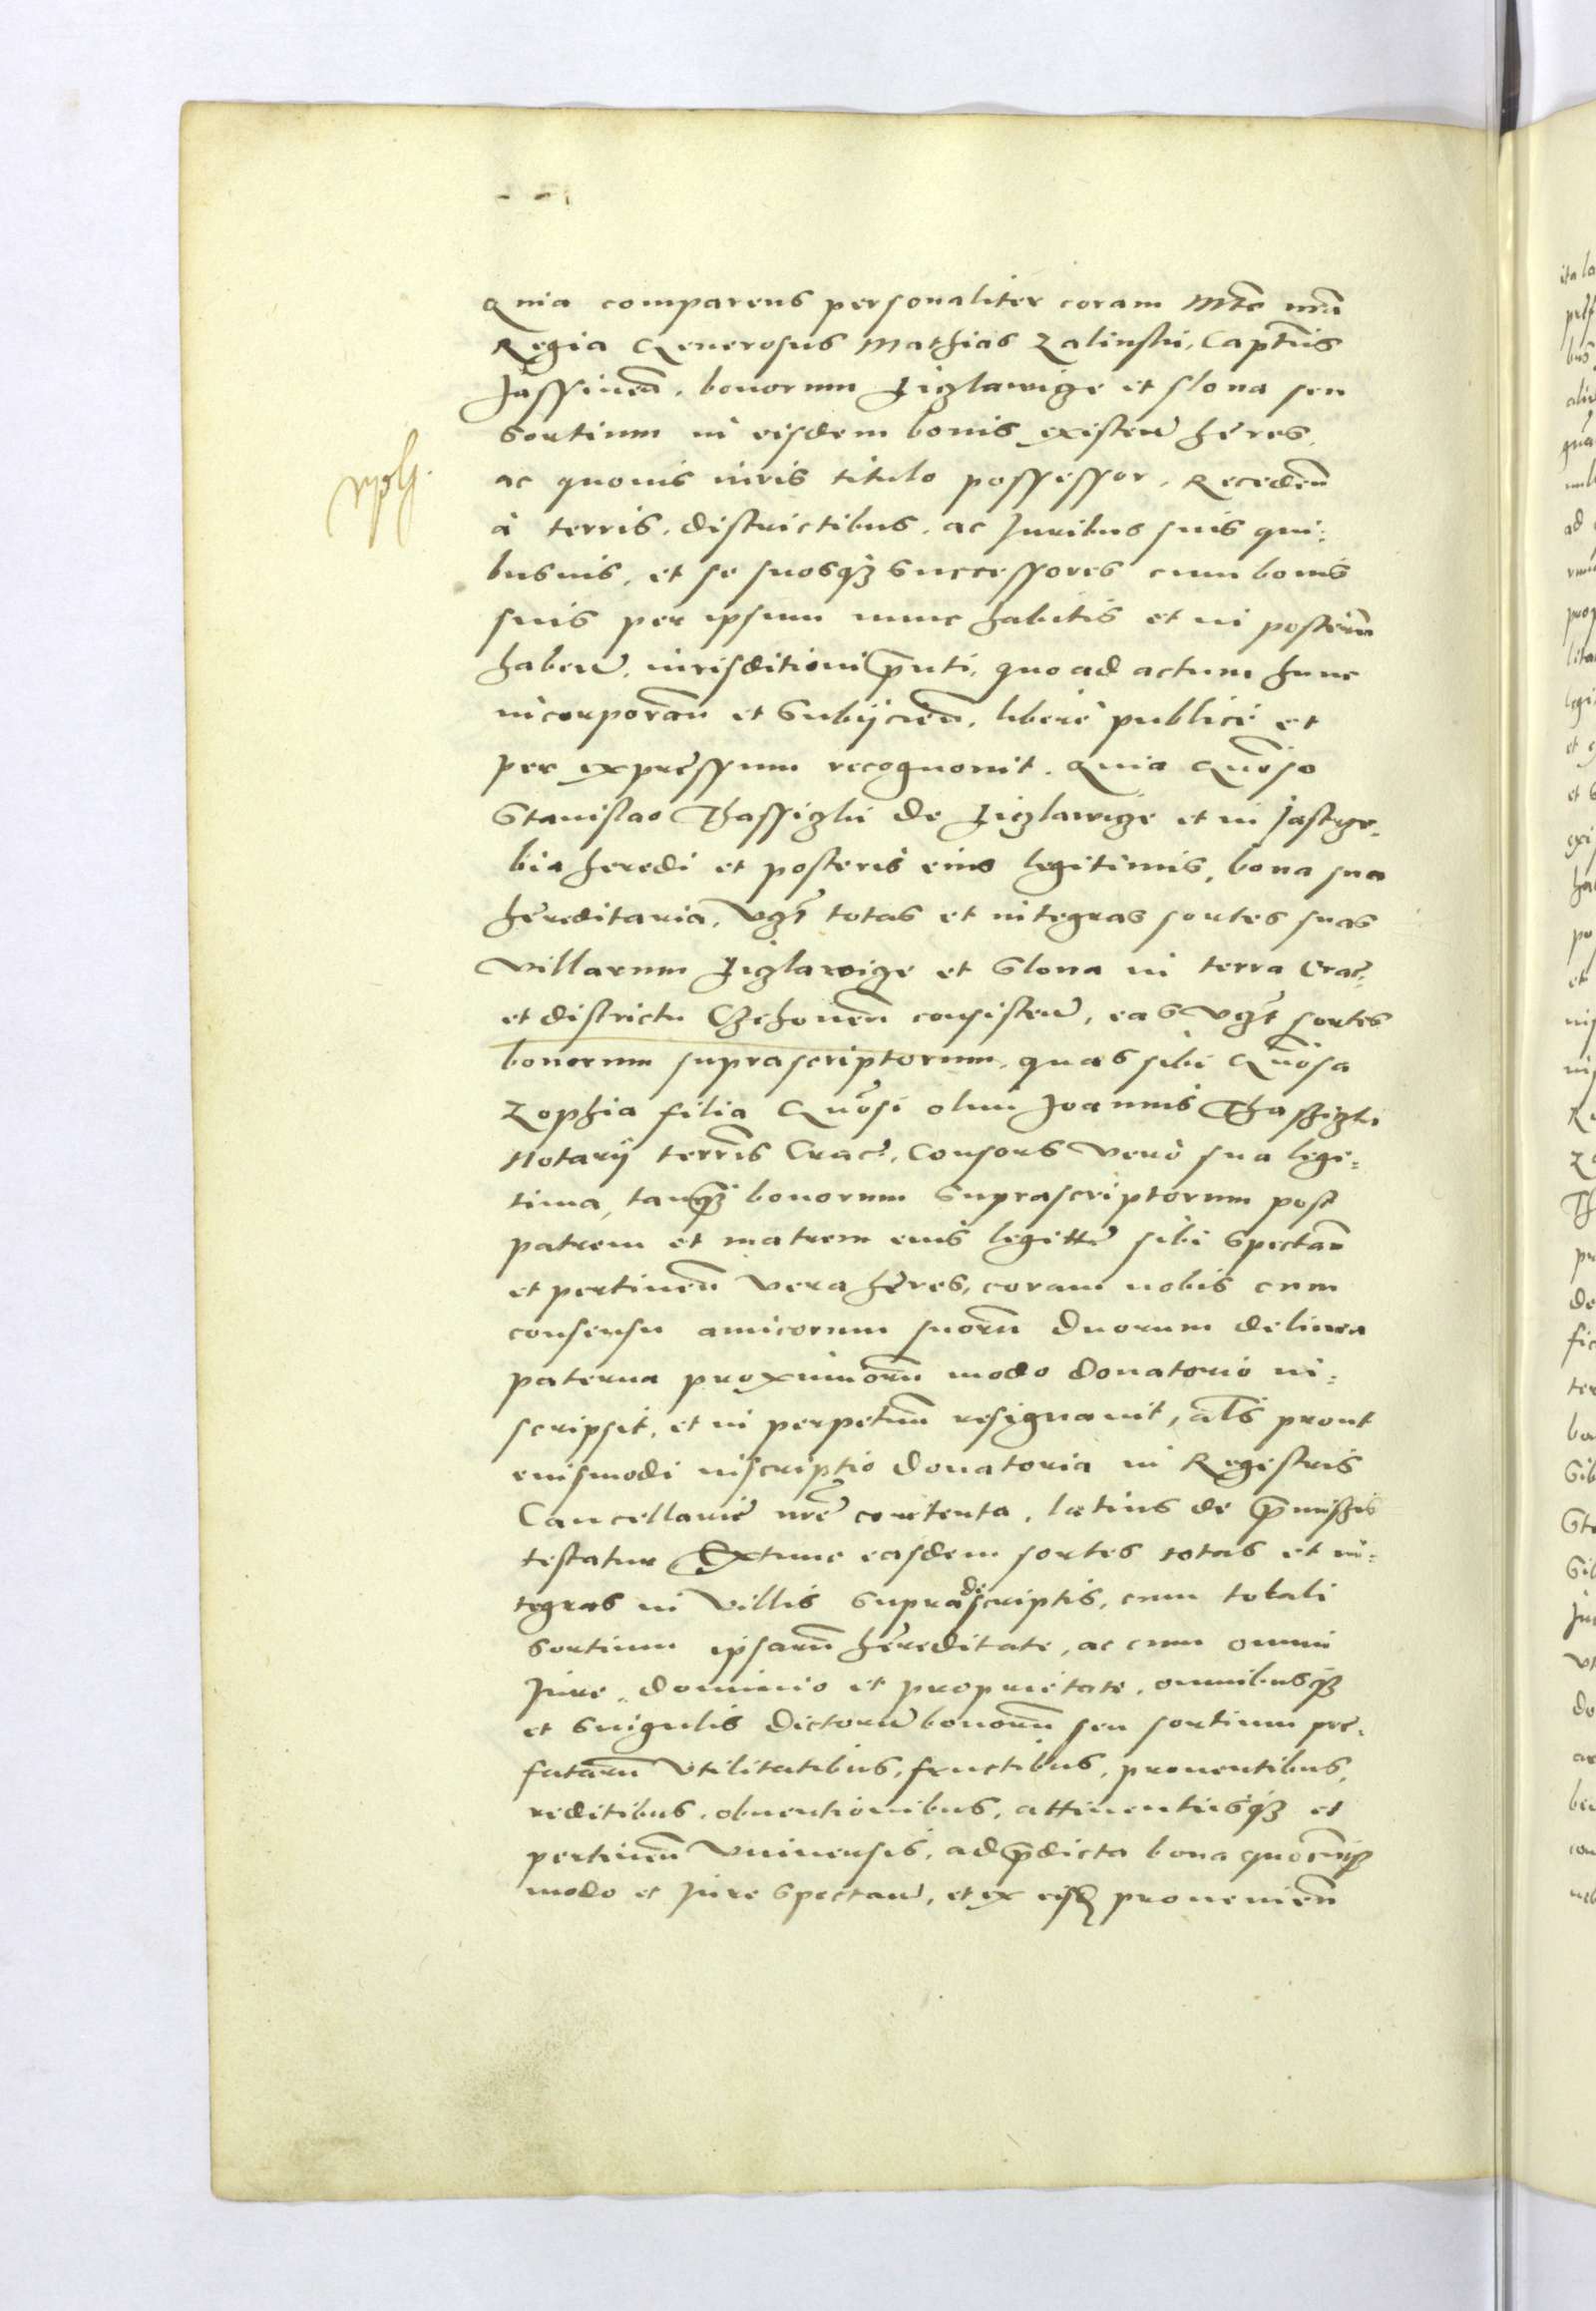 Quia comparens personaliter coram Mte nra
Regia Generosus Mathias Zalinski, Captus
Jassinen. bonorum Jiglawize et slona seu
sortium in eisdem bonis existen heres,
ac quovis iuris titulo possessor. Receden
à terris, districtibus, ac Juribus suis qui:
busvis, et se suosq3 successores cum bonis
suis per ipsum nunc habitis et in posterum
haben, iurisditioni pnti, quo ad actum hunc
incorporan et subijcien, liberè publicè et
per expressum recognovit. Quia Gnoso
Stanislao Thassizki de Jiglawize et in Jastrze-
bia heredi et posteris eius legitimis, bona sua
hereditaria, vizt totas et integras sortes suas
villarum Jiglawize et Slona in terra Crac:
et districtu Czchouen consisten, eas vizt sortes
bonorum suprascriptorum, quas sibi Gnosa
Zophia filia Gnosi olim Joannis Thassizki
Notarij terris Crac, Consors vero sua legi:
tima, tanq3 bonorum suprascriptorum post
patrem et matrem eius legittè sibi spectan
et pertinen vera heres, coram nobis cum
consensu amicorum suoru duorum de linea
paterna proximioru modo donatorio in:
scripsit, et in perpetuum resignavit, als prout
euismodi inscriptio donatoria in Registris
Cancellarie nre contenta, latius de pmissis
testatur Extunc easdem sortes totas et in:
tegras in villis supradescriptis, cum totali
sortium ipsaru hereditate, ac cum omni
Jure, dominio et proprietate, omnibusq3
et singulis dictoru bonoru seu sortium pre-
fataru utilitatibus, fructibus, proventibus,
reditibus, obventionibus, attinentiisq3 et
pertinen universis, ad pdicta bona quocunq3
modo et Jure spectan, et ex eisd provenien